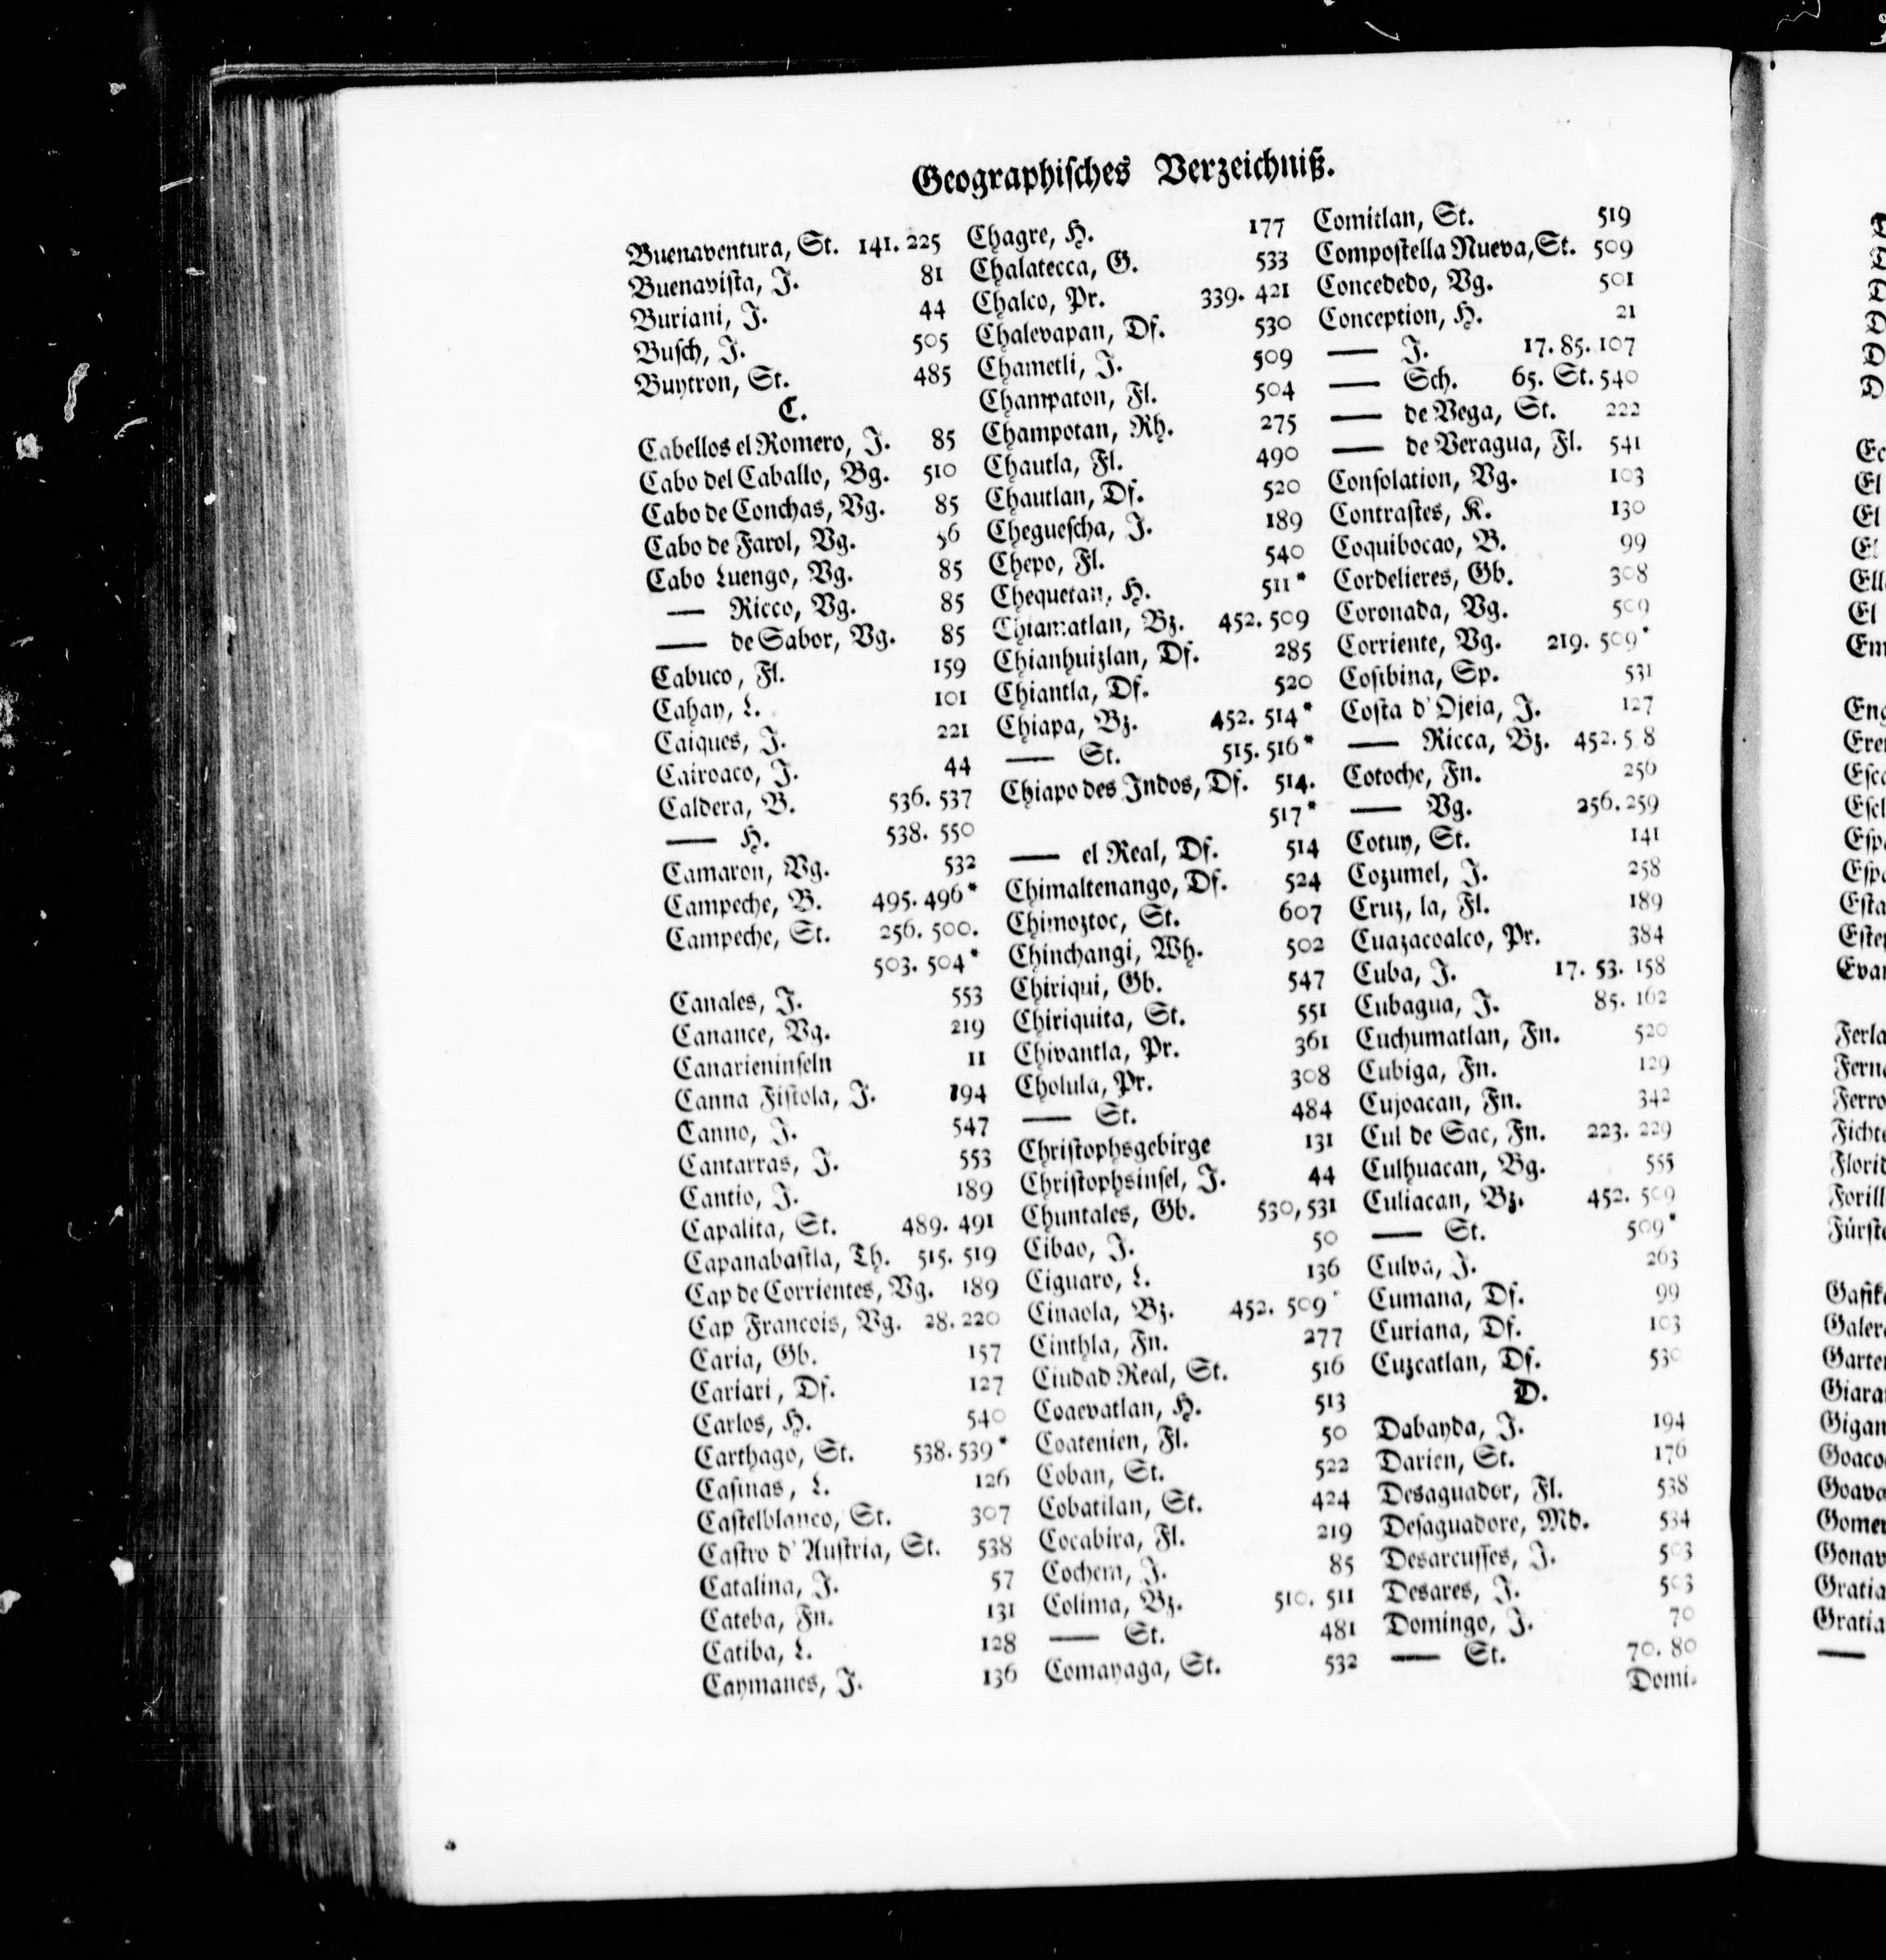 Geographisches Verzeichniß.
Buenaventura, St. 141. 225
Buenavista, J. 81
Buriani, J. 44
Busch, J. 505
Buytron, St. 485
C.
Cabellos el Romero, J. 85
Cabo del Caballo, Bg. 510
Cabo de Conchas, Vg. 85
Cabo de Farol, Vg. 56
Cabo Luengo, Vg. 85
— Ricco, Vg. 85
— de Sabor, Vg. 85
Cabuco, Fl. 159
Cahay, L. 101
Caiques, J. 221
Cairoaco, J. 44
Caldera, B. 536. 537
— H. 538. 550
Camaron, Vg. 532
Campeche, B. 495. 496*
Campeche, St. 256. 500.
503. 504*
Canales, J. 553
Canance, Vg. 219
Canarieninseln 11
Canna Fistola, J. 194
Canno, J. 547
Cantarras, J. 553
Cantio, J. 189
Capalita, St. 489. 491
Capanabastla, Th. 515. 519
Cap de Corrientes, Vg. 189
Cap Francois, Vg. 28. 220
Caria, Gb. 157
Cariari, Df. 127
Carlos, H. 540
Carthago, St. 538. 539*
Casinas, L. 126
Castelblanco, St. 307
Castro d'Austria, St. 538
Catalina, J. 57
Cateba, Fn. 131
Catiba, L. 128
Caymanes, J. 136
Chagre, H. 177
Chalatecca, G. 533
Chalco, Pr. 339. 421
Chalevapan, Df. 530
Chametli, J. 509
Champaton, Fl. 504
Champotan, Rh. 275
Chautla, Fl. 490
Chautlan, Df. 520
Cheguescha, J. 189
Chepo, Fl. 540
Chequetan, H. 511*
Chiamatlan, Bz. 452. 509
Chianhuizlan, Df. 285
Chiantla, Df. 520
Chiapa, Bz. 452. 514*
— St. 515. 516*
Chiapo des Indos, Df. 514.
517*
— el Real, Df. 514
Chimaltenango, Df. 524
Chimoztoc, St. 607
Chinchangi, Wh. 502
Chiriqui, Gb. 547
Chiriquita, St. 551
Chivantla, Pr. 361
Cholula, Pr. 308
— St. 484
Christophsgebirge 131
Christophsinsel, J. 44
Chuntales, Gb. 530, 531
Cibao, J. 50
Ciguaro, L. 136
Cinaola, Bz. 452. 509*
Cinthla, Fn. 277
Ciudad Real, St. 516
Coacvatlan, H. 513
Coatenien, Fl. 50
Coban, St. 522
Cobatilan, St. 424
Cocabira, Fl. 219
Cochem, J. 85
Colima, Bz. 510. 511
— St. 481
Comayaga, St. 532
Comitlan, St. 519
Compostella Nueva, St. 509
Concededo, Vg. 501
Conception, H. 21
— J. 17. 85. 107
— Sch. 65. St. 540
— de Vega, St. 222
— de Veragua, Fl. 541
Consolation, Vg. 103
Contrastes, K. 130
Coquibocao, B. 99
Cordelieres, Gb. 308
Coronada, Vg. 509
Corriente, Vg. 219. 509*
Cosibina, Sp. 531
Costa d'Ojeia, J. 127
— Ricca, Bz. 452.
Cotoche, Fn. 256
— Vg. 256. 259
Cotuy, St. 141
Cozumel, J. 258
Cruz, la, Fl. 189
Cuazacoalco, Pr. 384
Cuba, J. 17. 53. 158
Cubagua, J. 85. 162
Cuchumatlan, Fn. 520
Cubiga, Fn. 129
Cujoacan, Fn. 342
Cul de Sac, Fn. 223. 229
Culhuacan, Bg. 555
Culiacan, Bz. 452. 509
— St. 509*
Culva, J. 263
Cumana, Df. 99
Curiana, Df. 103
Cuzcatlan, Df. 530
D.
Dabayda, J. 194
Darien, St. 176
Desaguador, Fl. 538
Desaguadore, Md. 534
Desarcusses, J. 503
Desares, J. 503
Domingo, J. 70
— St. 70. 80
Domi-